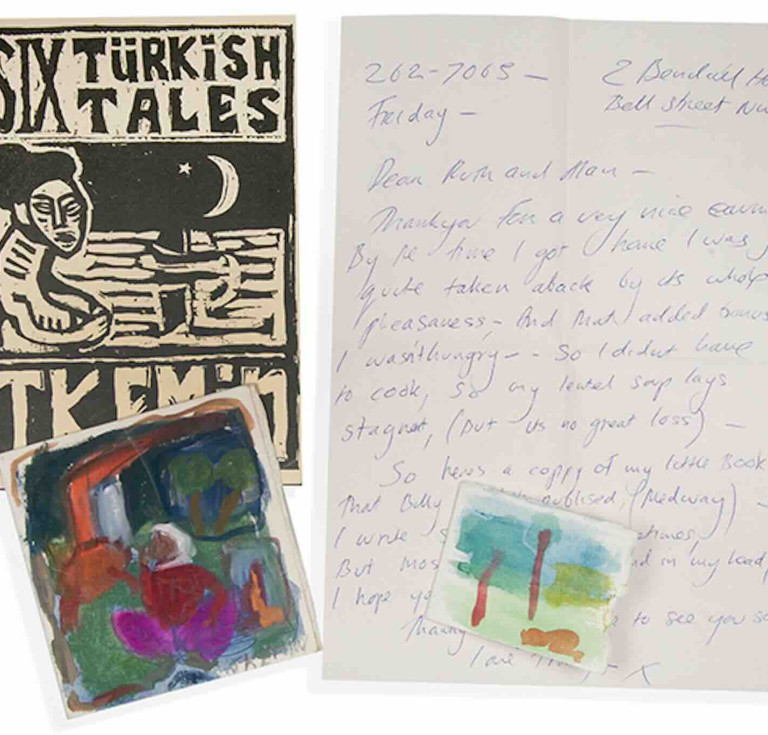 SIX TÜRKiSH
TALES
TK EMiN
262-7065 –
2 Bendall
Bell Street
Friday –
Dear Ruth and Alan –
Thankyou for a very nice
By the time I got home I was
quite taken aback by its whole
pleasaness – And that added bonus
I wasn't hungry – - So I didnt have
to cook, So my lentel soup lays
stagnet, (but its no great loss) –
So heres a coppy of my little Book
That Billy publised, (Medway) –
I write
But mos in my head
I hope to see you
Love
X